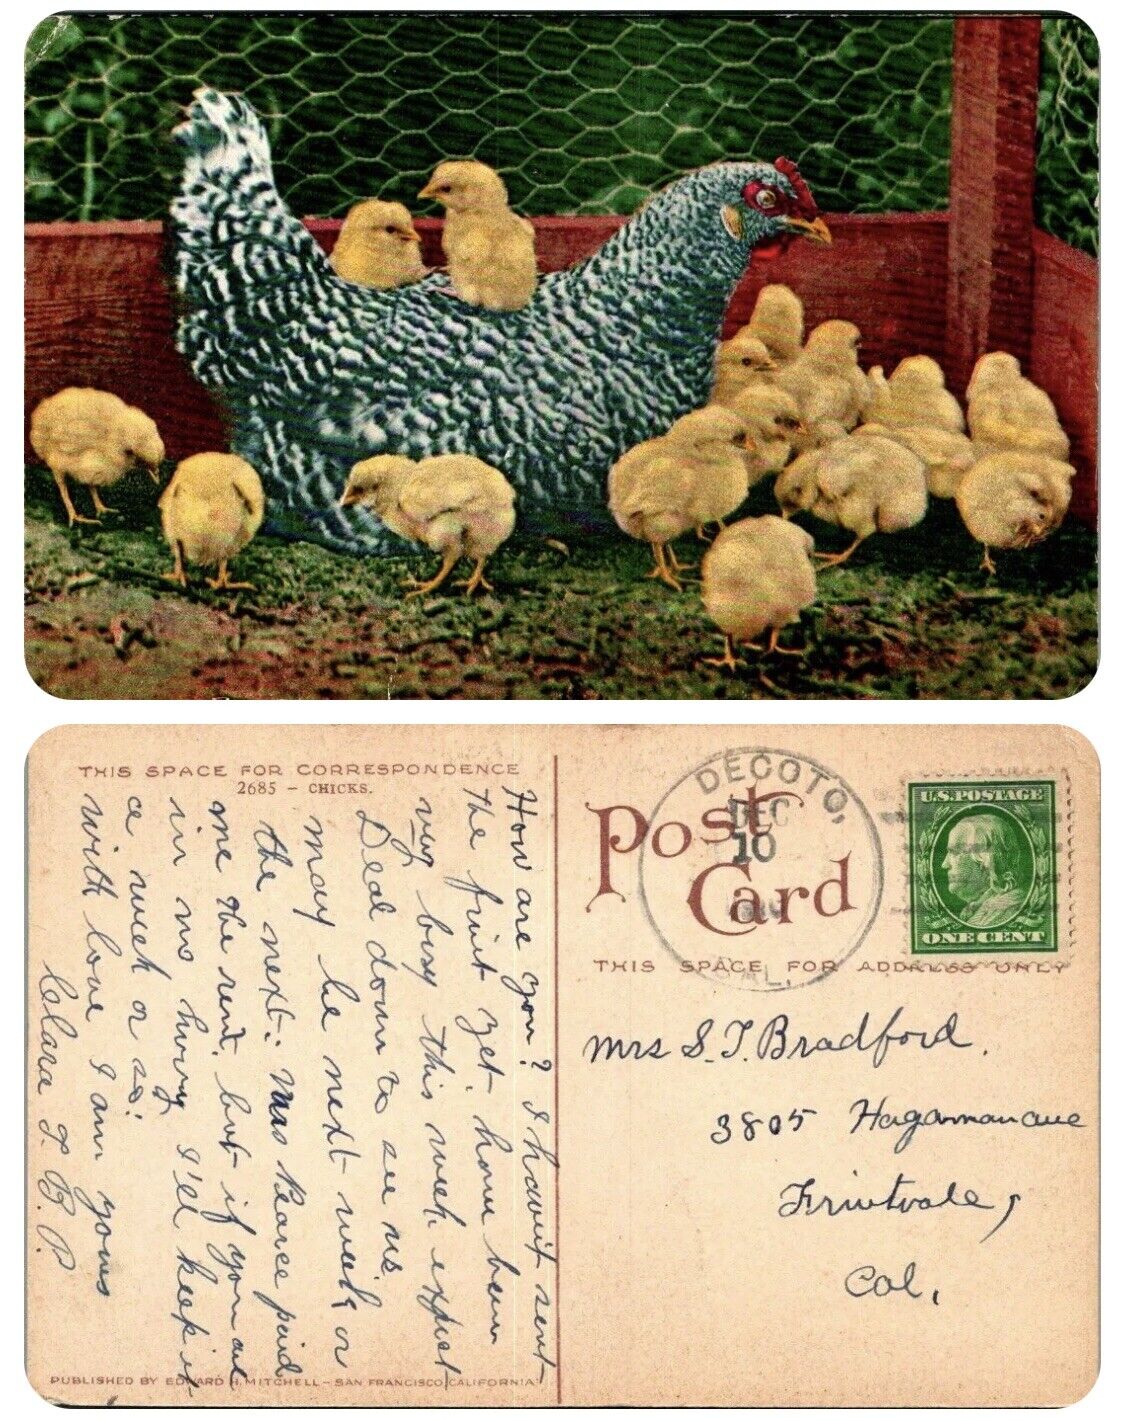 THIS SPACE FOR CORRESPONDENCE
2685 - CHICKS.
How are you? I havint sent
the fruit yet. have been
very busy this week. expect
Deal down to see us
may be next week, or
the next: Mrs Pearce paid
me the rent. but if you are
in no, hurry I'll keep it
a week or so:
with love I am yours
Clara I. B. P.
PUBLISHED BY EDWARD H. MITCHELL - SAN FRANCISCO, CALIFORNIA
Post Card
THIS SPACE FOR ADDRESS ONLY
DECOTO,
DEC
10
CAL.
U.S. POSTAGE
ONE CENT
Mrs S. T. Bradford.
3805 Hagaman ave
Fruitvale,
Cal,